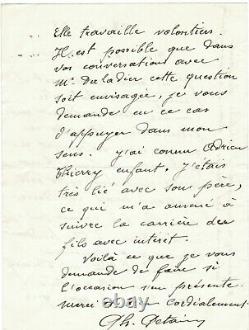 Elle travaille volontiers.
Il est possible que dans
vos conversations avec
Mr Daladier cette question
soit envisagée, je vous
demande en ce cas
d'appuyer dans mon
sens. J'ai connu Adrien
Thierry enfant. J'étais
très lié avec son père,
ce qui m'a amené à
suivre la carrière des
fils avec intérêt.
Voilà ce que je vous
demande de faire si
l'occasion s'en présente.
merci cordialement
Ph. Pétain